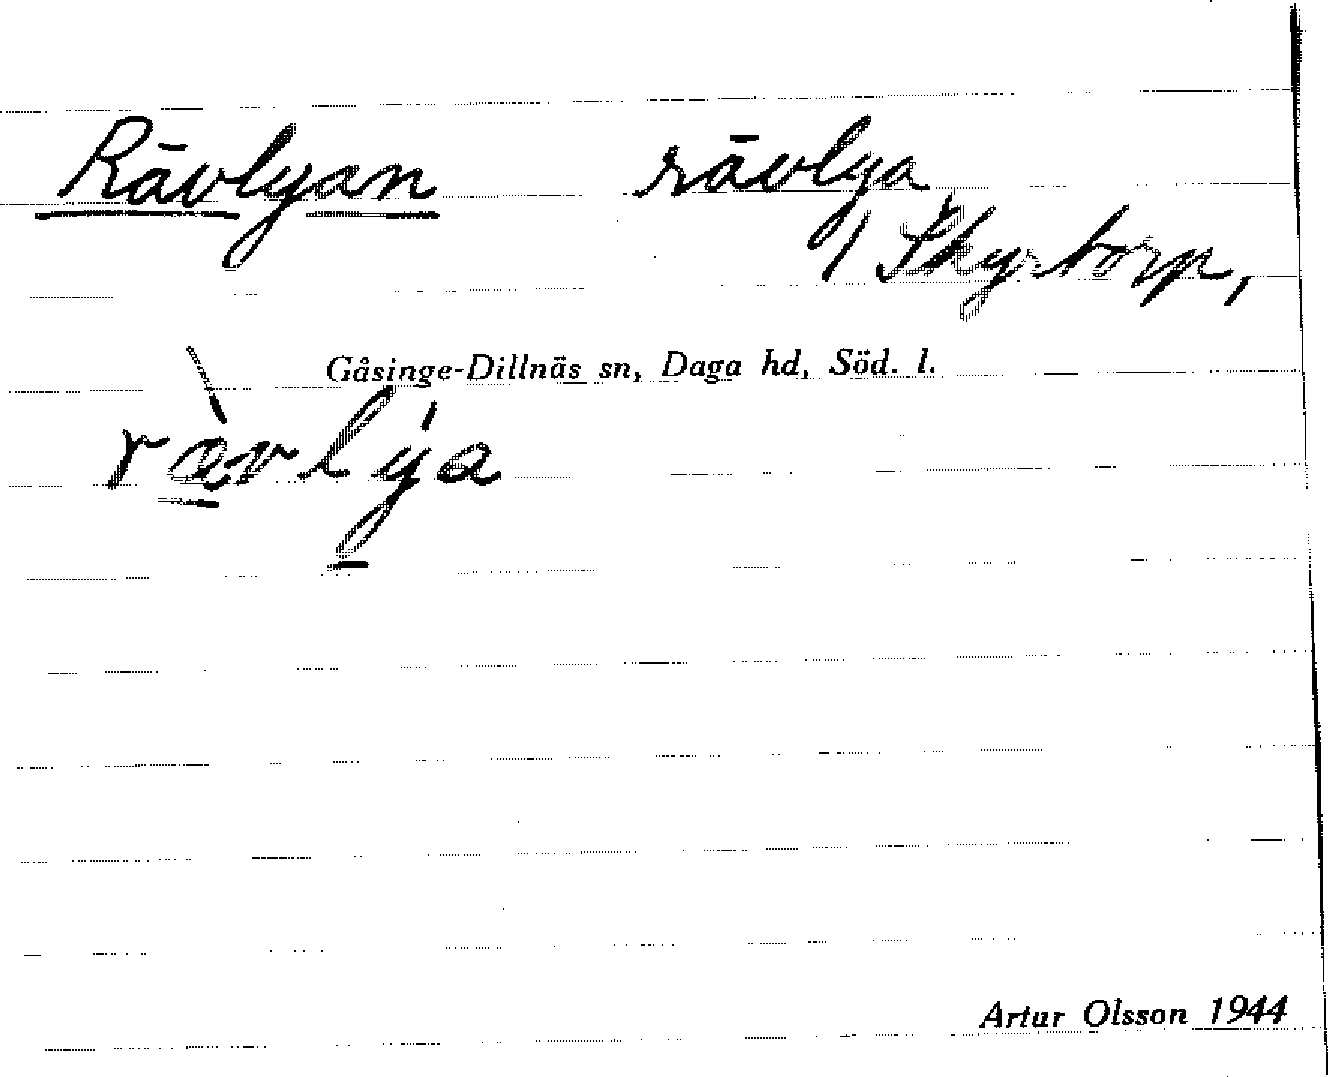 Rävlyan rävlya
/ Skyrtorp,
Gåsinge-Dillnäs sn, Daga hd, Söd. l.
rὰvlýa
Artur Olsson 1944